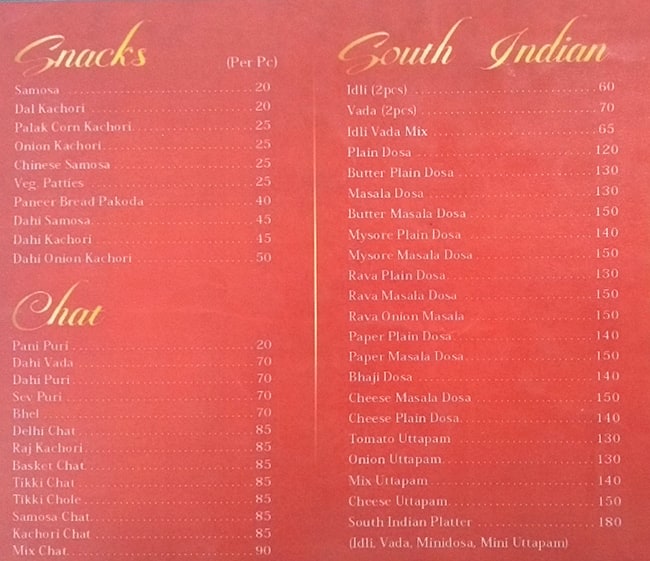 Snacks (Per Pc)
Samosa 20
Dal Kachori 20
Palak Corn Kachori 25
Onion Kachori 25
Chinese Samosa 25
Veg. Patties 25
Paneer Bread Pakoda 40
Dahi Samosa 45
Dahi Kachori 45
Dahi Onion Kachori 50
Chat
Pani Puri 20
Dahi Vada 70
Dahi Puri 70
Sev Puri 70
Bhel 70
Delhi Chat 85
Raj Kachori 85
Basket Chat 85
Tikki Chat 85
Tikki Chole 85
Samosa Chat 85
Kachori Chat 85
Mix Chat 90
South Indian
Idli (2pcs) 60
Vada (2pcs) 70
Idli Vada Mix 65
Plain Dosa 120
Butter Plain Dosa 130
Masala Dosa 130
Butter Masala Dosa 150
Mysore Plain Dosa 140
Mysore Masala Dosa 150
Rava Plain Dosa 130
Rava Masala Dosa 150
Rava Onion Masala 150
Paper Plain Dosa 140
Paper Masala Dosa 150
Bhaji Dosa 140
Cheese Masala Dosa 150
Cheese Plain Dosa 140
Tomato Uttapam 130
Onion Uttapam 130
Mix Uttapam 140
Cheese Uttapam 150
South Indian Platter 180
(Idli, Vada, Minidosa, Mini Uttapam)